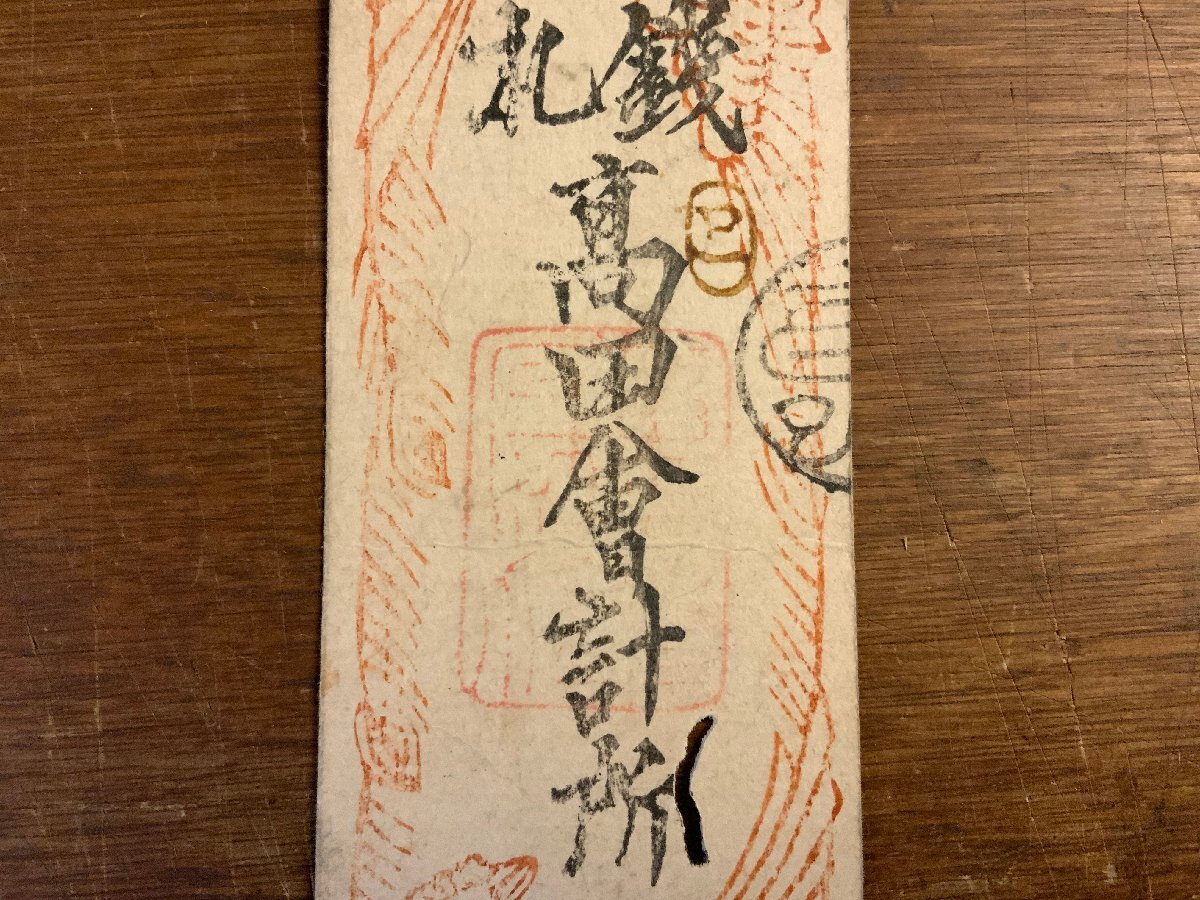 錢
札
高田會計所